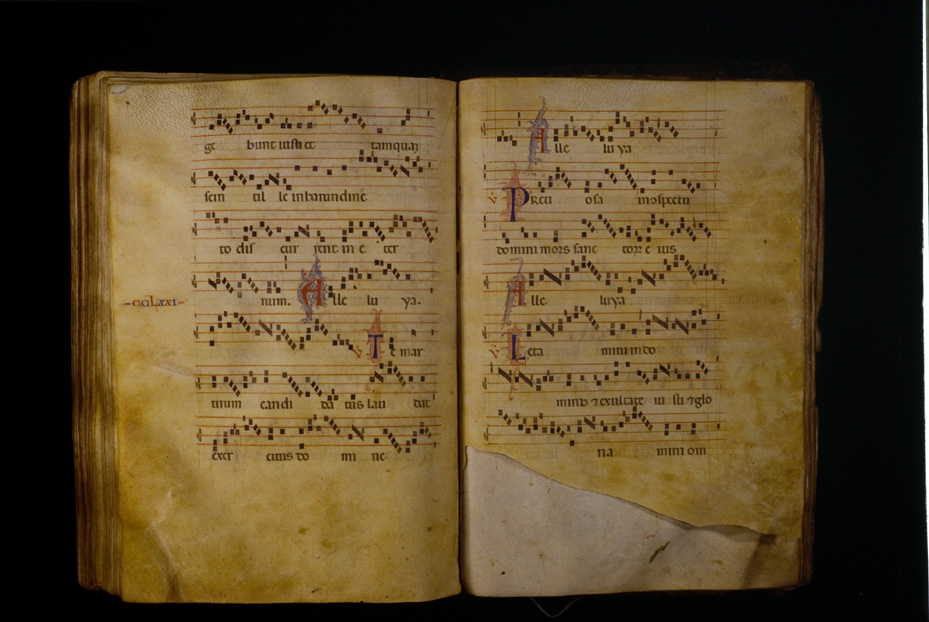 ge bunt iusti et tamquaʒ
scin til le in harundine
to dis cur rent in e ter
num. Alle lu ya.
-CCLXXI-
Te mar
tirum candi da tus lau dat
exer citus do mi ne
Alle lu ya
V. Preti osa in cspectu
domini mors sanc torr e ius
Alle lu ya
V. Leta mini in do
mino ⁊ exultate iu sti ⁊ glo
ria mini om